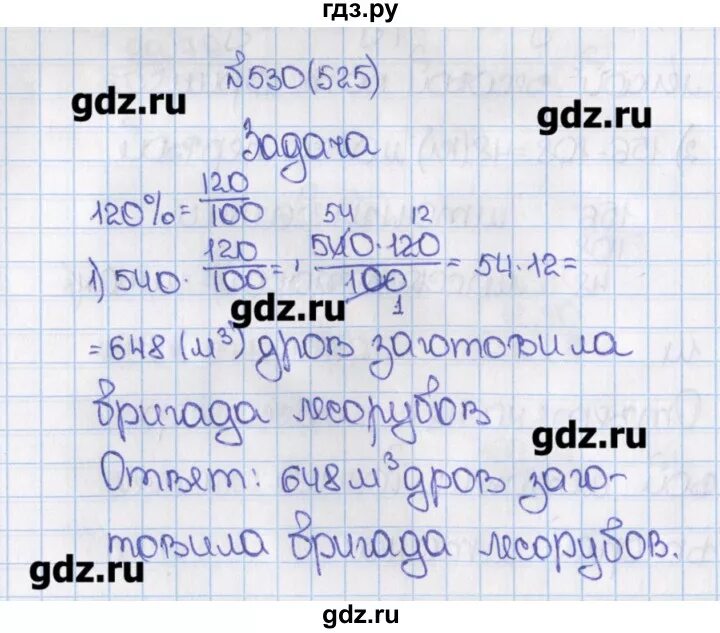 гдз.ру
№530(525)
gdz.ru
gdz.ru
Задача
120% = 120/100
54 12
1) 540 · 120/100 = 540·120/100 = 54·12 =
1
gdz.ru
= 648 (м³) дров заготовила
бригада лесорубов
gdz.ru
Ответ: 648 м³ дров заго-
товила бригада лесорубов.
gdz.ru
gdz.ru